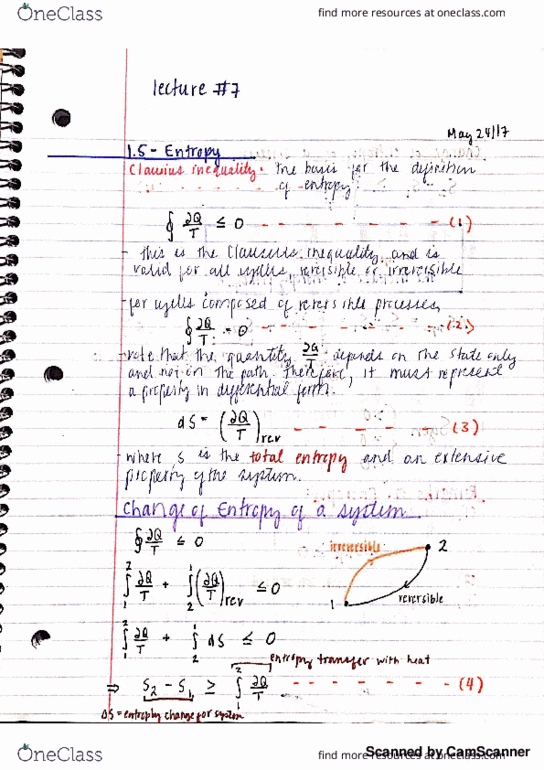 OneClass
find more resources at oneclass.com
lecture #7
May 24/17
1.5 - Entropy
Clausius inequality: the basis for the definition
of entropy
∮ ∂Q/T ≤ 0 - - - - - - - (1)
- this is the Clausius inequality and is
valid for all cycles, reversible or irreversible
- for cycles composed of reversible processes,
∮ ∂Q/T = 0 - - - - - - - (2)
- note that the quantity ∂Q/T depends on the state only
and not on the path. therefore, it must represent
a property in differential form.
dS = (∂Q/T)rev - - - - - (3)
where S is the total entropy and an extensive
property of the system.
Change of Entropy of a system
∮ ∂Q/T ≤ 0
irreversible
2
∫₁² ∂Q/T + ∫₂¹ (∂Q/T)rev ≤ 0
1
reversible
∫₁² ∂Q/T + ∫₂¹ dS ≤ 0
entropy transfer with heat
⇒ S₂ - S₁ ≥ ∫₁² ∂Q/T - - - - - - - (4)
ΔS = entropy change for system
Scanned by CamScanner
OneClass
find more resources at oneclass.com